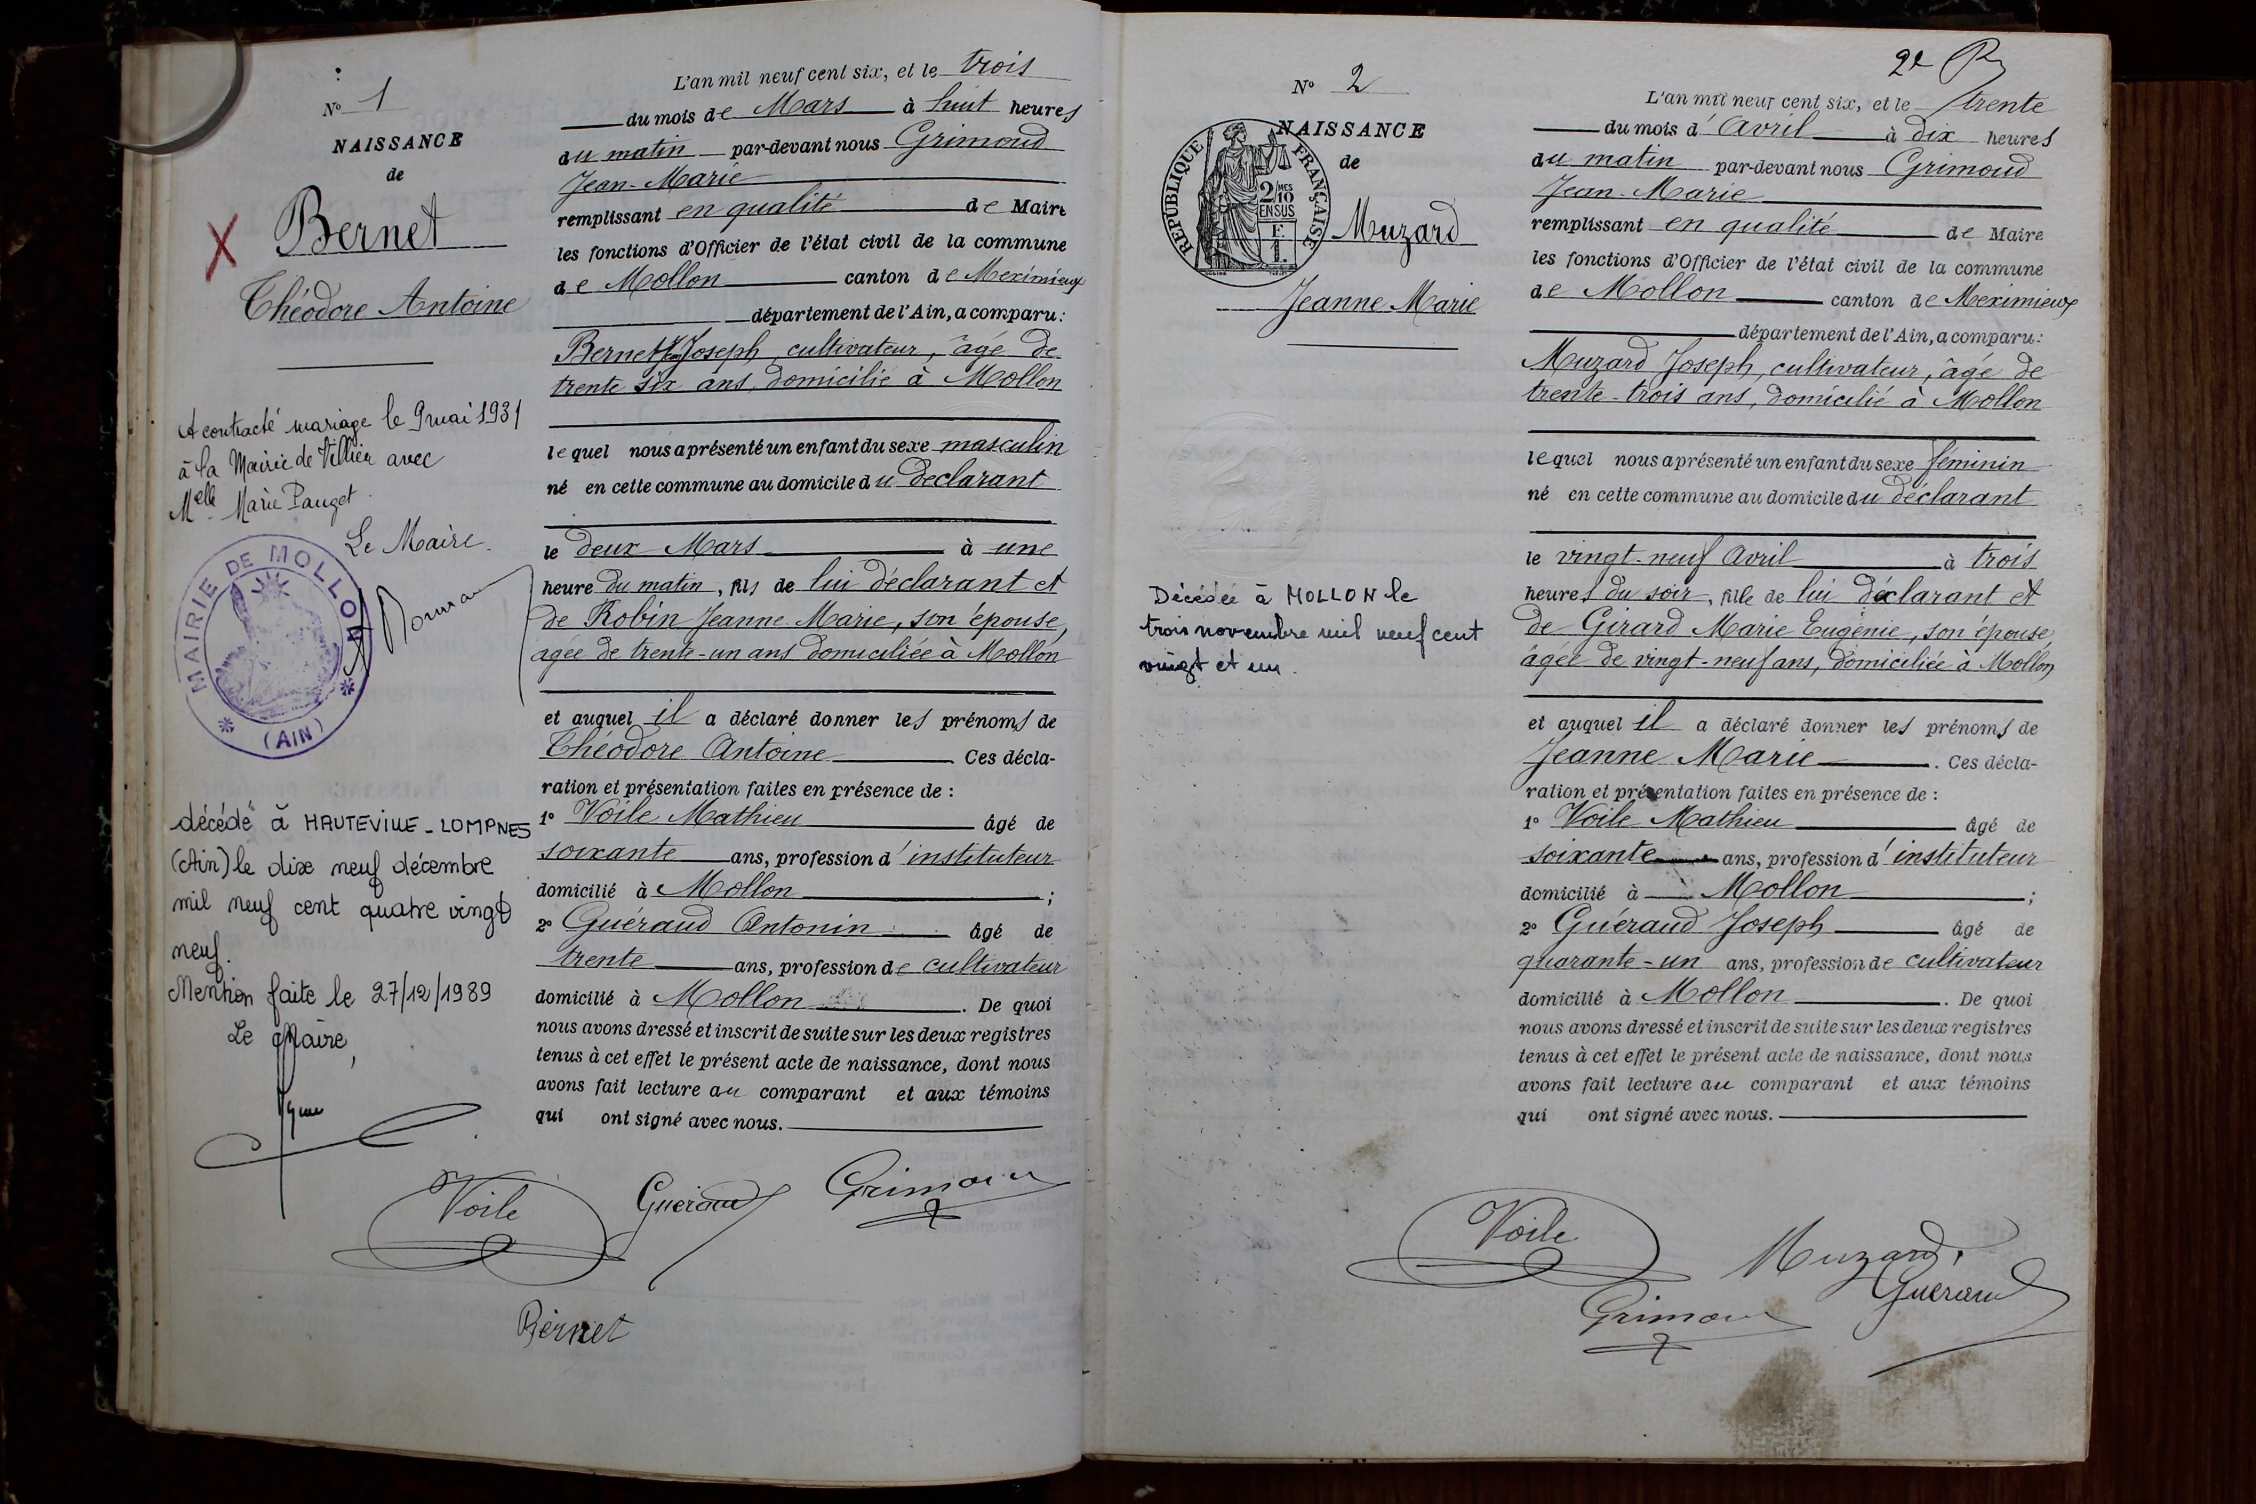 N° 1
NAISSANCE
de
Bernet
Théodore Antoine
A contracté mariage le 9 mai 1931
à la Mairie de Villieu avec
Melle Marie Pauget
Le Maire
MAIRIE DE MOLLON
(AIN)
décédé à HAUTEVILLE-LOMPNES
(Ain) le dix neuf décembre
mil neuf cent quatre vingt
neuf.
Mention faite le 27/12/1989
Le Maire,
L'an mil neuf cent six, et le trois
du mois de Mars à huit heures
du matin par-devant nous Grimoud
Jean-Marie
remplissant en qualité de Maire
les fonctions d'Officier de l'état civil de la commune
de Mollon canton de Meximieux
département de l'Ain, a comparu:
Bernet Joseph, cultivateur, âgé de
trente six ans, domicilié à Mollon
lequel nous a présenté un enfant du sexe masculin
né en cette commune au domicile du déclarant
le deux Mars à une
heure du matin, fils de lui déclarant et
de Robin Jeanne Marie, son épouse,
agée de trente-un ans domiciliée à Mollon
et auquel il a déclaré donner les prénoms de
Théodore Antoine Ces décla-
ration et présentation faites en présence de :
1° Voile Mathieu âgé de
soixante ans, profession d'instituteur
domicilié à Mollon ;
2° Guéraud Antonin âgé de
trente ans, profession de cultivateur
domicilié à Mollon . De quoi
nous avons dressé et inscrit de suite sur les deux registres
tenus à cet effet le présent acte de naissance, dont nous
avons fait lecture au comparant et aux témoins
qui ont signé avec nous.
Voile Guéraud Grimoud
Bernet
2e
N° 2
NAISSANCE
de
REPUBLIQUE FRANÇAISE
2/10 MES
EN SUS
F.
1.
Muzard
Jeanne Marie
Décédée à MOLLON le
trois novembre mil neuf cent
vingt et un.
L'an mil neuf cent six, et le trente
du mois d'Avril à dix heures
du matin par-devant nous Grimoud
Jean-Marie
remplissant en qualité de Maire
les fonctions d'Officier de l'état civil de la commune
de Mollon canton de Meximieux
département de l'Ain, a comparu:
Muzard Joseph, cultivateur, âgé de
trente-trois ans, domicilié à Mollon
lequel nous a présenté un enfant du sexe féminin
né en cette commune au domicile du déclarant
le vingt-neuf Avril à trois
heures du soir, fille de lui déclarant et
de Girard Marie Eugénie, son épouse,
âgée de vingt-neuf ans, domiciliée à Mollon
et auquel il a déclaré donner les prénoms de
Jeanne Marie . Ces décla-
ration et présentation faites en présence de :
1° Voile Mathieu âgé de
soixante ans, profession d'instituteur
domicilié à Mollon ;
2° Guéraud Joseph âgé de
quarante-un ans, profession de cultivateur
domicilié à Mollon . De quoi
nous avons dressé et inscrit de suite sur les deux registres
tenus à cet effet le présent acte de naissance, dont nous
avons fait lecture au comparant et aux témoins
qui ont signé avec nous.
Voile Muzard
Guéraud
Grimoud